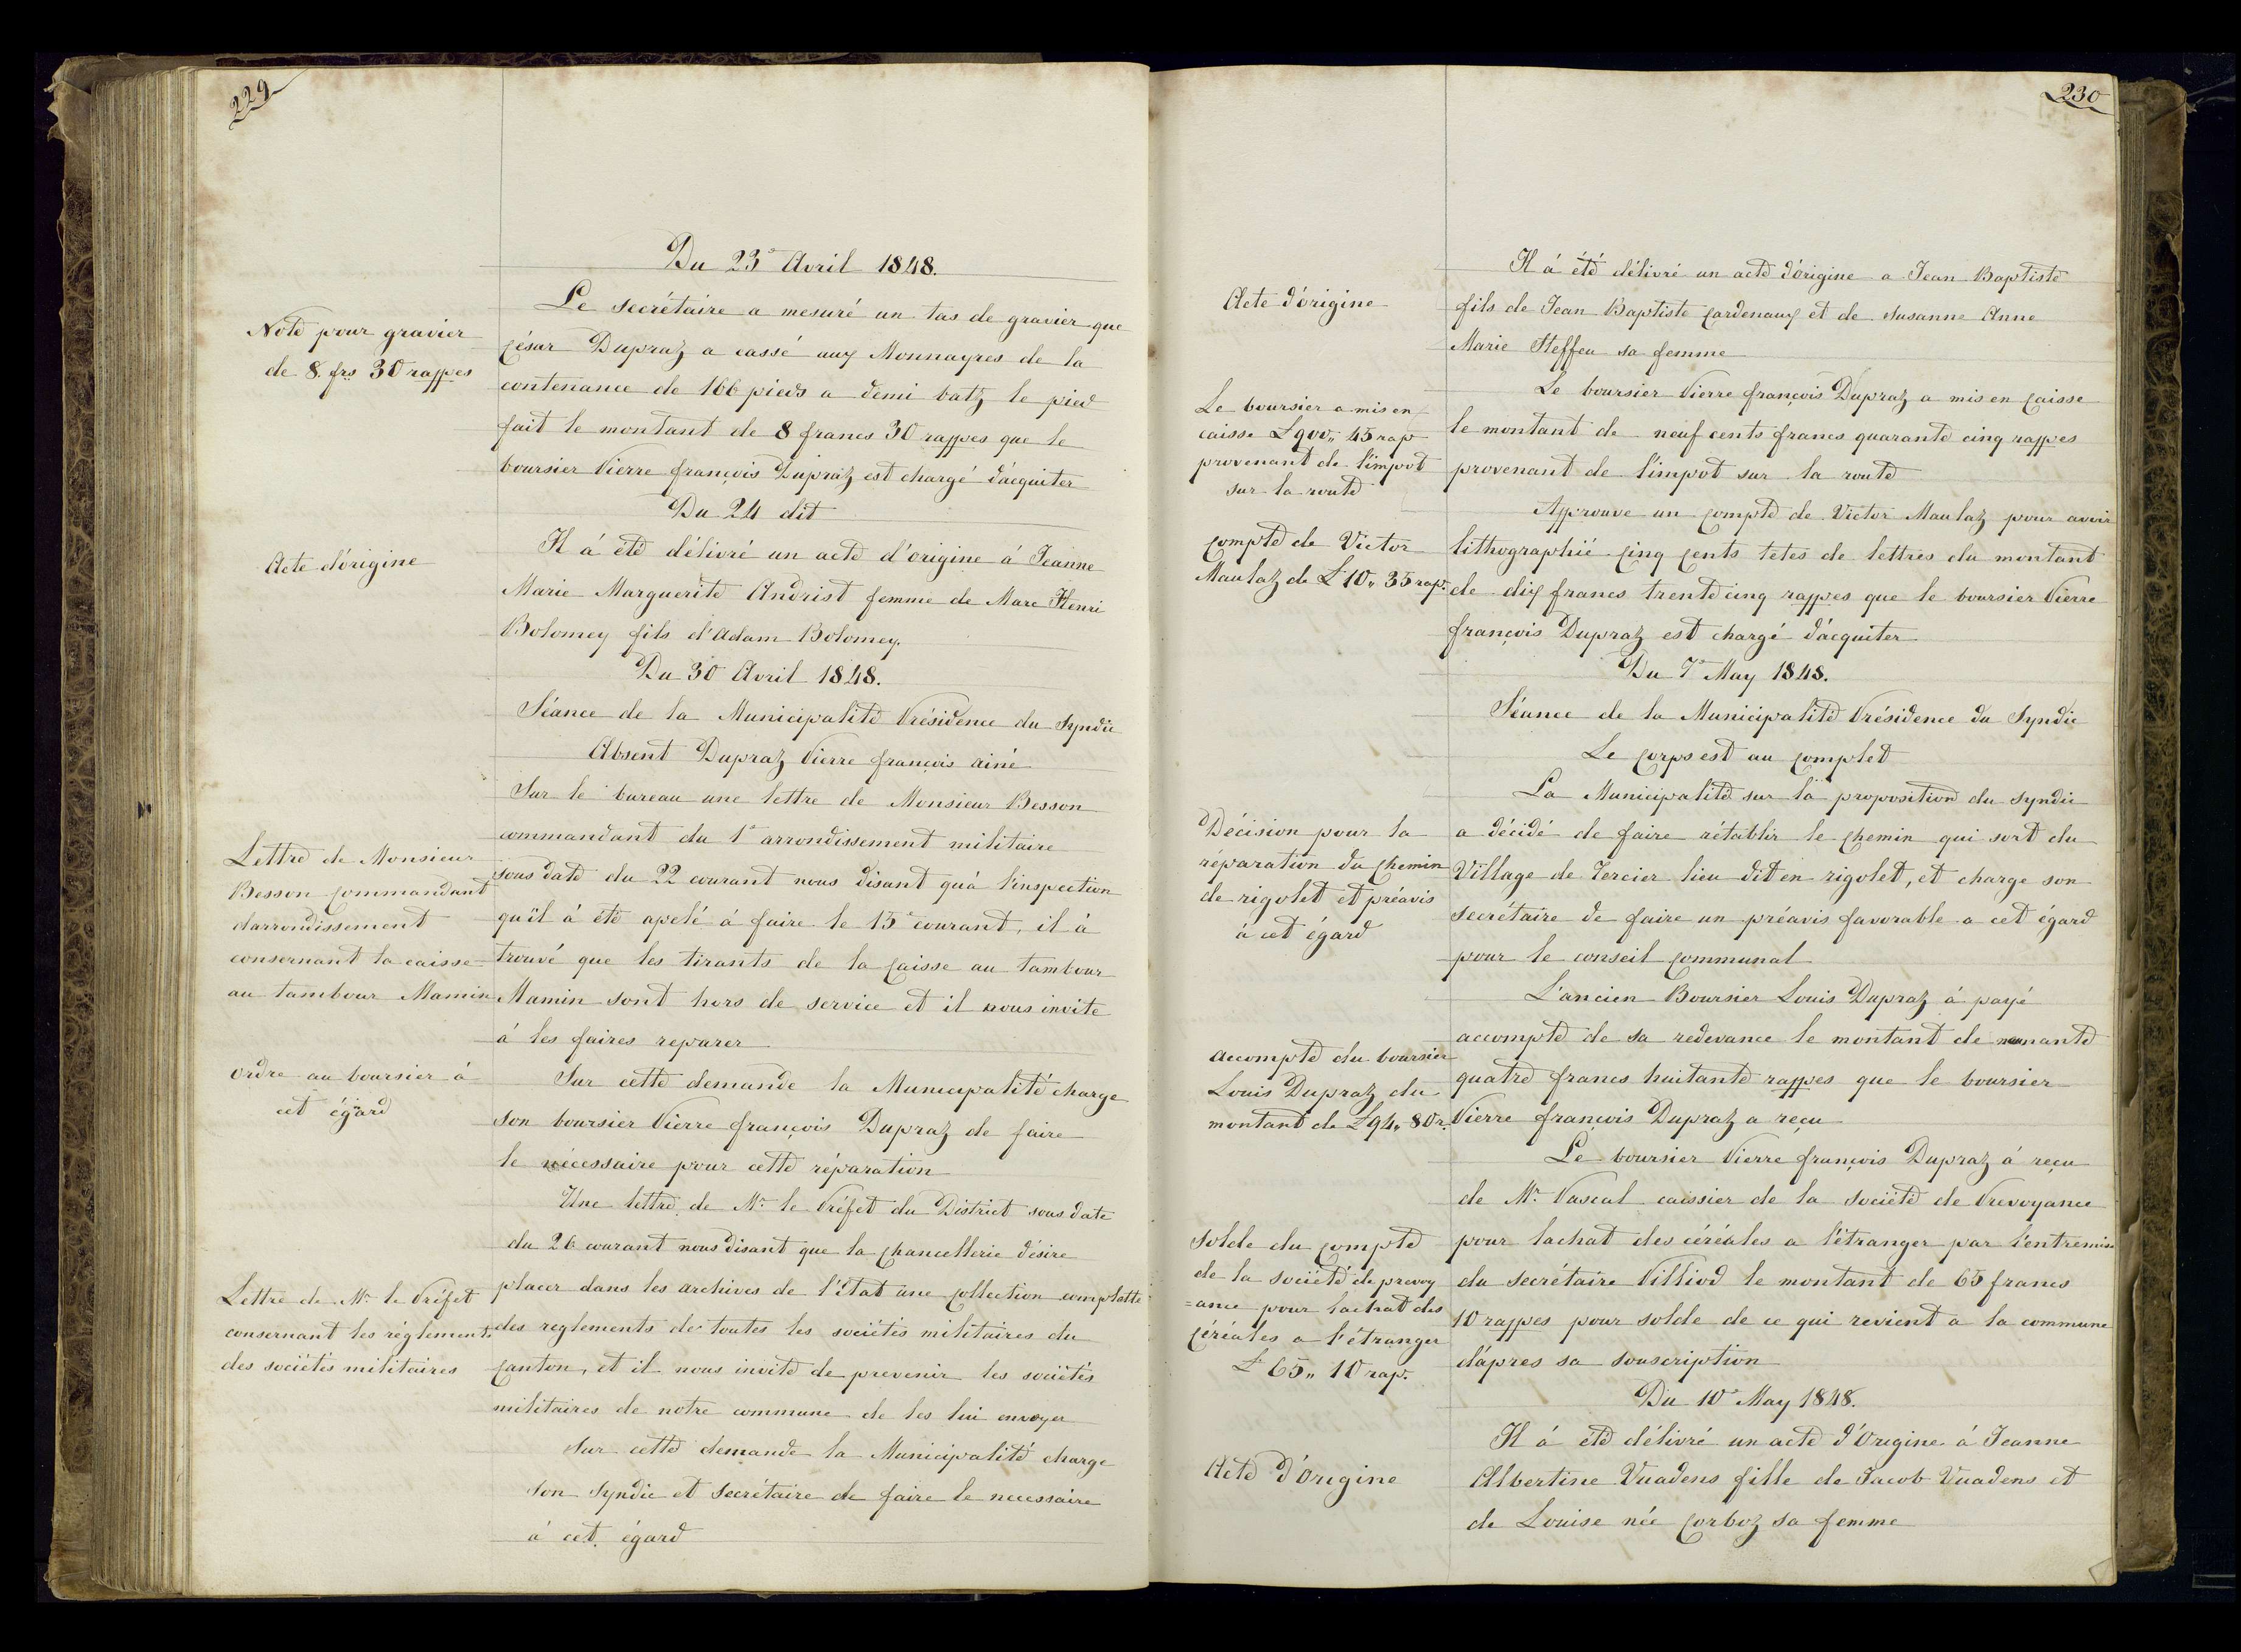 229
Du 23e Avril 1848.
Le secrétaire a mesuré un tas de gravier que
Note pour gravier
de 8. frs 30 rappes
César Dupraz a cassé aux Monnayres de la
contenance de 166 pieds a demi batz le pied
fait le montant de 8 francs 30 rappes que le
boursier Pierre françois Dupraz est chargé d'acquiter
Du 24 dit
Acte d'origine
Il á été délivré un acte d'origine á Jeanne
Marie Marguerite Andrist femme de Marc Henri
Bolomey fils d'Adam Bolomey.
Du 30 Avril 1848.
Séance de la Municipalité Présidence du Syndic
Absent Dupraz Pierre françois ainé
Sur le bureau une lettre de Monsieur Besson
commandant du 1e arrondissement militaire
Lettre de Monsieur
Besson Commandant
d'arrondissement
consernant la caisse
au tambour Mamin
sous date du 22 courant nous disant qu'á l'inspection
qu'il á été apelé á faire le 15e courant, il á
trouvé que les tirants de la Caisse au tambour
Mamin sont hors de service et il nous invite
á les faires reparer
ordre au boursier á
cet égard
Sur cette demande la Municipalité charge
son boursier Pierre françois Dupraz de faire
le nécessaire pour cette réparation
Une lettre de Mr le Préfet du District sous date
du 26 courant nous disant que la Chancellerie désire
Lettre de Mr le Préfet
consernant les réglements
des sociétés militaires
placer dans les archives de l'état une Collection complette
des reglements de toutes les sociétés militaires du
Canton, et il nous invite de prevenir les sociétés
militaires de notre commune de les lui envoyer
Sur cette demande la Municipalité charge
son Syndic et Secrétaire de faire le necessaire
á cet égard
230
Acte d'origine
Il á été délivré un acte d'origine a Jean Baptiste
fils de Jean Baptiste Cardenaux et de Susanne Anne
Marie Steffen sa femme
Le boursier a mis en
caisse L 900,, 45 rap
provenant de l'impot
sur la route
Le boursier Pierre françois Dupraz a mis en Caisse
le montant de neuf cents francs quarante cinq rappes
provenant de l'impot sur la route
Compte de Victor
Maulaz de L 10,, 35 rap.
Approuve un Compte de Victor Maulaz pour avoir
lithographié Cinq Cents tetes de lettres du montant
de dix francs trente cinq rappes que le boursier Pierre
françois Dupraz est chargé d'acquiter
Du 7e May 1848.
Séance de la Municipalité Présidence du Syndic
Le Corps est au Complet
La Municipalité sur la proposition du Syndic
Décision pour la
réparation du Chemin
de rigolet et préavis
á cet égard
a décidé de faire rétablir le Chemin qui sort du
Village de Tercier lieu dit en rigolet, et charge son
secrétaire de faire un préavis favorable a cet égard
pour le conseil Communal
accompte du boursier
Louis Dupraz du
montant de L 94,, 80 r.
L'ancien Boursier Louis Dupraz á payé
accompte de sa redevance le montant de nonante
quatre francs huitante rappes que le boursier
Pierre françois Dupraz a reçu
Le boursier Pierre françois Dupraz á reçu
de Mr Pascal caissier de la société de Prevoyance
Solde du Compte
de la société de prevoy
=ance pour lachat des
Céréales a l'étranger
L 65,, 10 rap.
pour lachat des céréales a l'étranger par l'entremise
du secrétaire Pilliod le montant de 65 francs
10 rappes pour solde de ce qui revient a la commune
d'apres sa souscription
Du 10e May 1848.
Acte d'Origine
Il á été délivré un acte d'Origine á Jeanne
Albertine Vuadens fille de Jacob Vuadens et
de Louise née Corboz sa femme